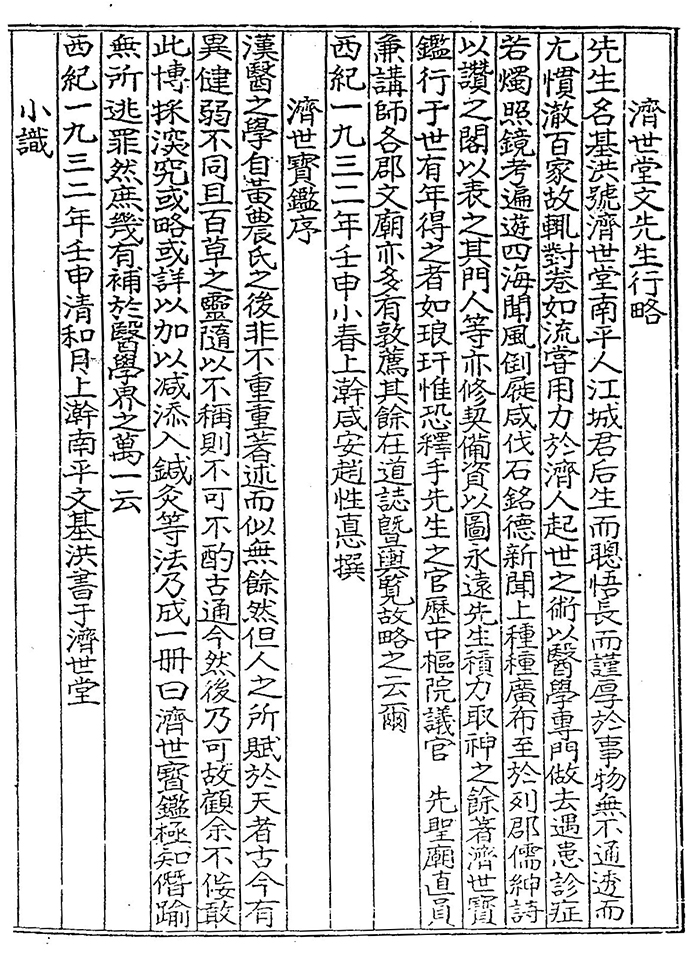 濟世堂文先生行略
先生名基洪號濟世堂南平人江城君后生而聰悟長而謹厚於事物無不通透而
尢慣澈百家故輒對卷如流嘗用力於濟人起世之術以醫學專門做去遇患診症
若燭照鏡考遍遊四海聞風倒屣咸伐石銘德新聞上種種廣布至於列郡儒紳詩
以讚之閣以表之其門人等亦修契備資以圖永遠先生積力取神之餘著濟世寶
鑑行于世有年得之者如琅玕惟恐釋手先生之官歷中樞院議官 先聖廟直員
兼講師各郡文廟亦多有敦薦其餘在道誌曁輿覽故略之云爾
西紀一九三二年壬申小春上澣咸安趙性悳撰
濟世寶鑑序
漢醫之學自黃農氏之後非不重重著述而似無餘然但人之所賦於天者古今有
異健弱不同且百草之靈隨以不稱則不可不酌古通今然後乃可故顧余不佞敢
此博採深究或略或詳以加以减添入鍼灸等法乃成一冊曰濟世寶鑑極知僭踰
無所逃罪然庶幾有補於醫學界之萬一云
西紀一九三二年壬申清和月上澣南平文基洪書于濟世堂
小識